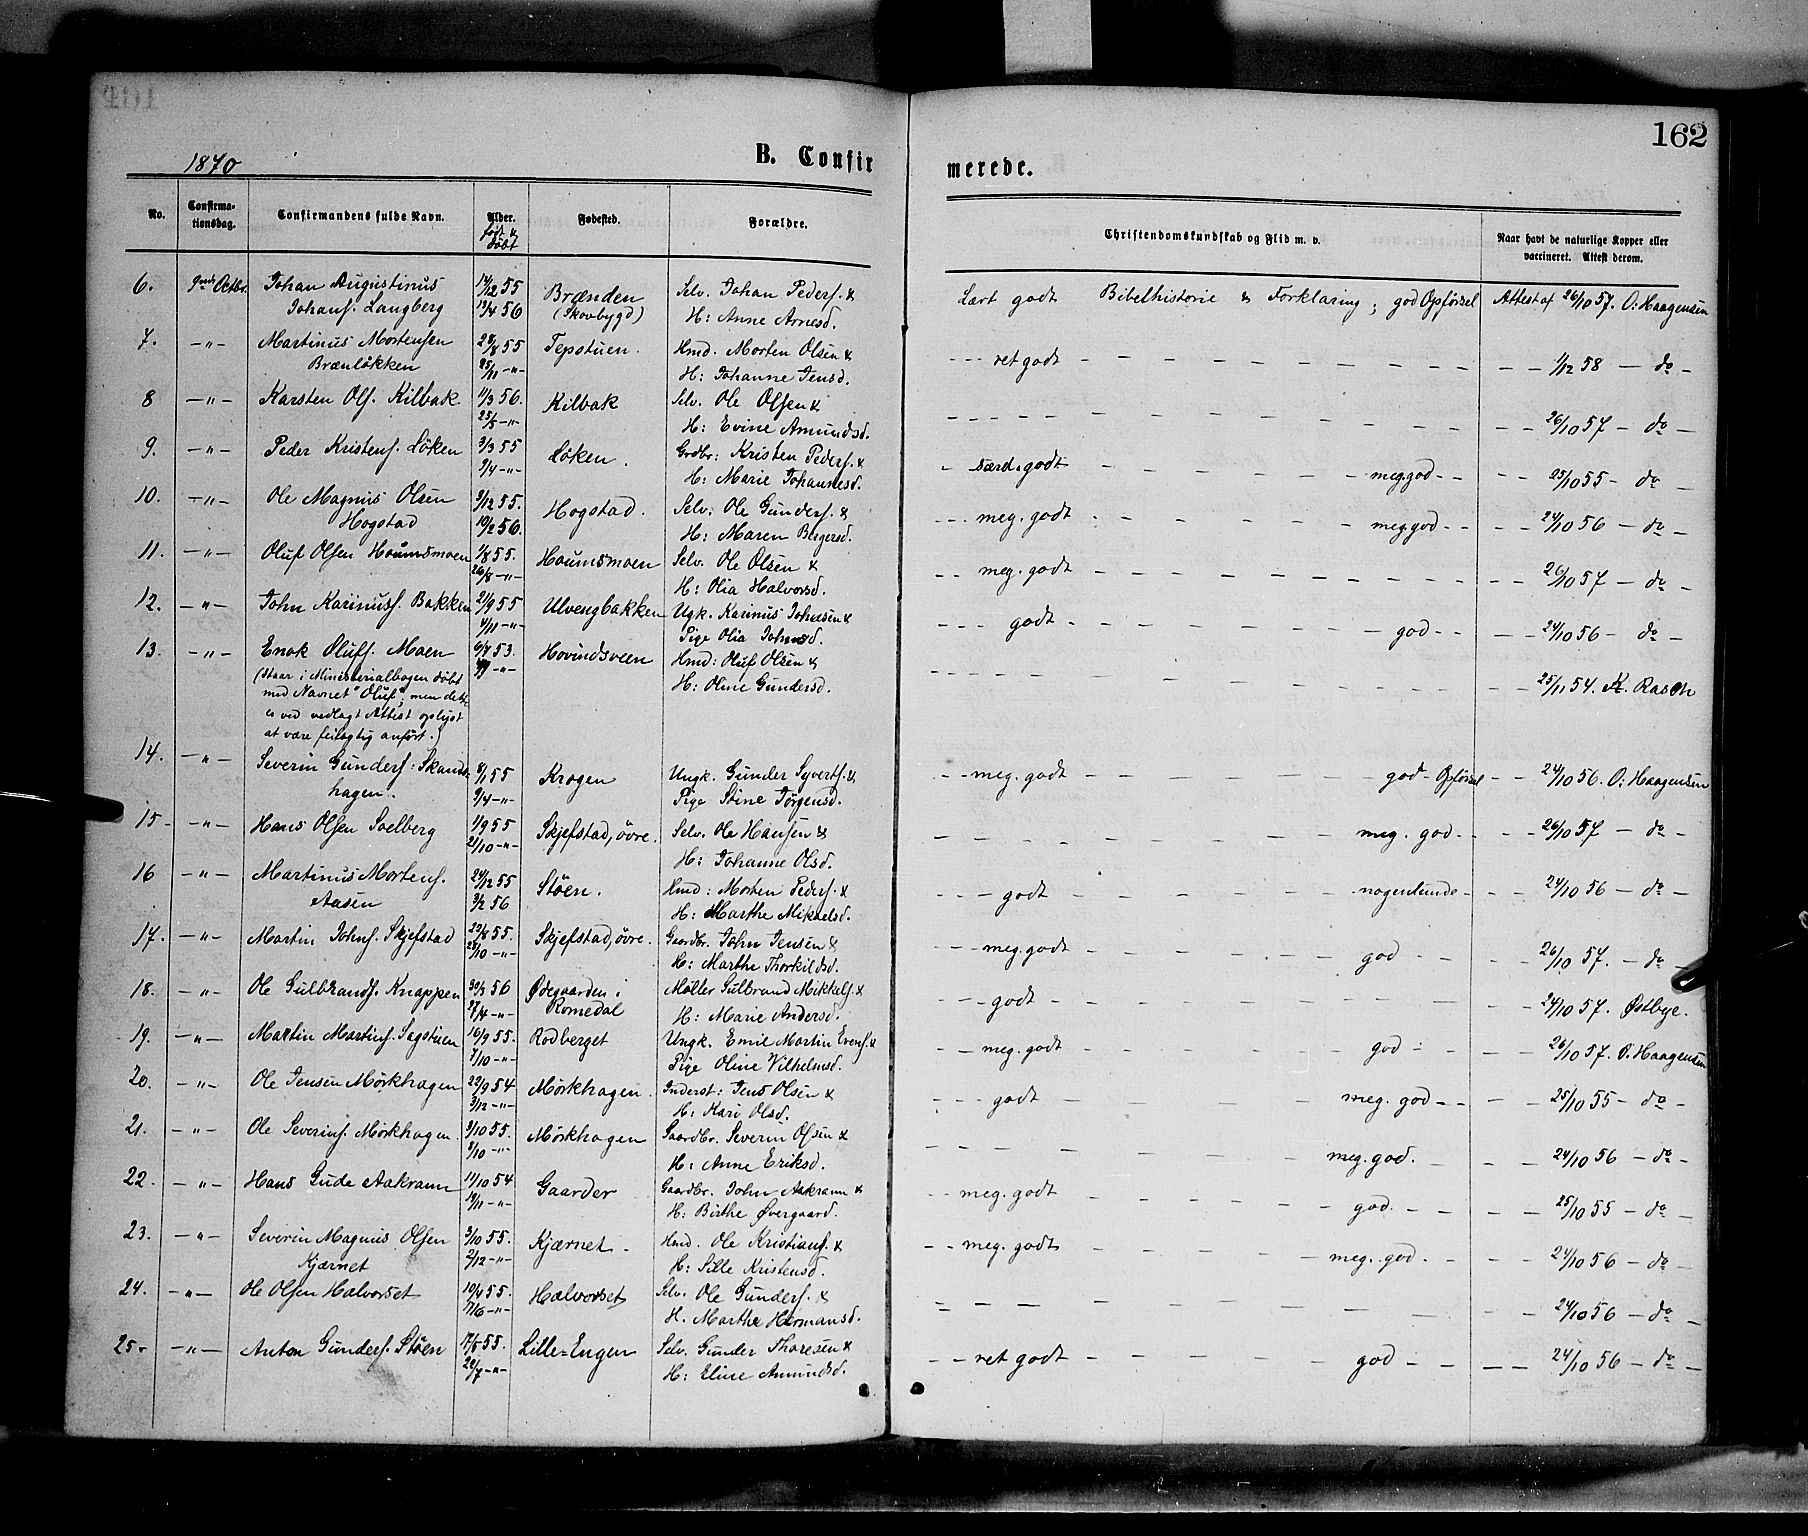 162
1870
B. Confir
merede.
No.
Confirma-
tionsdag.
Confirmandens fulde Navn.
Alder.
født &
døbt
Fødested.
Forældre.
Christendomskundskab og Flid m. v.
Naar havt de naturlige Kopper eller
vaccineret. Attest derom.
6. 9nd Octbr. Johan Augustinus 14/12 55 Brænden Selv. Johan Peders. & Lært godt Bibelhistorie & Forklaring; god Opførsel Attest af 26/10 57. O: Haagensen
Johans. Langberg 13/4 56 (Skovbygd) H: Anne Arnesd.
7. -"- Martinus Mortensen 28/8 55 Tepstuen. Hmd. Morten Olsen & - - ret godt - - 1/12 58 - do -
Brænløkken 25/11 -"- H: Johanne Jensd.
8 -"- Karsten Ols. Kilbak 11/3 56. Kilbak Selv. Ole Olsen & - - 26/10 57 - do -
25/5 -"- H: Evine Amundsd.
9. -"- Peder Kristens. Løken 3/3 55 Løken. Grdbr: Kristen Peders. & - særd. godt - meg. god - - 25/10 55 - do -
9/4 -"- H: Marie Johannesd.
10. -"- Ole Magnus Olsen 3/12 55. Hogstad. Selv. Ole Gunders. & - - meg. godt - meg. god - - 24/10 56 - do -
Hogstad 10/2 56. H: Maren Birgersd.
11. -"- Oluf Olsen Houmsmoen 1/8 55. Houmsmoen Selv. Ole Olsen & - - meg. godt - - 26/10 57 - do -
26/8 -"- H: Olia Halvorsd.
12. -"- John Karinus. Bakken 21/9 55 Ulvengbakken Ugk. Karinus Johnsen & - - godt - god - - 24/10 56 - do -
4/11 -"- Pige Olia Johnsd.
13. -"- Enok Olufs. Moen 6/4 53. Hovindsveen Hmd: Oluf Olsen & - 25/11 54. K. Rasch
(Staar i Ministerialbogen døbt H: Oline Gundersd.
med Navnet "Oluf", men dette
es ved vedlagt Attest oplyst
at være feilagtig anført.)
14. -"- Severin Gunders. Skands- 8/1 55 Krogen Ungk. Gunder Syverts. & - - meg. godt - god Opførsel - - 24/10 56. O: Haagensen
hagen. 9/4 -"- Pige Stine Jørgensd.
15 -"- Hans Olsen Solberg 1/9 55 Skjefstad, øvre. Selv. Ole Hansen & - meg. god - - 26/10 57 - do -
21/10 -"- H: Johanne Olsd.
16 -"- Martinus Mortens. 24/12 55 Støen. Hmd: Morten Peders. & - - godt - nogenlunde - - 24/10 56 - do -
Aasen 3/2 56 H: Marthe Mikkelsd.
17. -"- Martin Johns. Skjefstad 22/8 55. Skjefstad, øvre. Gaardbr. John Jensen & - - meg. godt - god - - 26/10 57. - do -
28/10 -"- H: Marthe Thorkildsd.
18. -"- Ole Gulbrands. Knappen 30/3 56 Ødegaarden i Møller Gulbrand Mikkels. & - - godt - - 24/10 57. Østbye.
27/4 -"- Romedal H: Marie Andersd.
19. -"- Martin Martins. Sagstuen 16/9 55. Rodberget Ungk. Emil Martin Evens. & - - meg. godt - god - - 26/10 57. O: Haagensen
7/10 -"- Pige Oline Vilhelmsd.
20. -"- Ole Jensen Mørkhagen 22/9 54 Mørkhagen. Inderst: Jens Olsen & - - godt - meg. god - - 25/10 55 - do -
3/12 -"- H: Kari Olsd.
21. -"- Ole Severins. Mørkhagen. 3/10 55. Mørkhagen Gaardbr. Severin Olsen & - meg. god. - - 24/10 56 - do -
8/10 -"- H: Anne Eriksd.
22. -"- Hans Gude Aakrann 11/10 54 Gaarder Gaardbr. John Aakrann & - - meg. godt - god. - - 25/10 55 - do -
19/11 -"- H: Birthe Øvergaard.
23. -"- Severin Magnus Olsen 3/10 55. Kjærnet - Hmd. Ole Kristians. & - - meg. godt - meg. god - - 24/10 56 - do -
Kjærnet 2/12 -"- H: Sille Kristensd.
24. -"- Ole Olsen Halvorset 10/4 55. Halvorset Selv. Ole Gunders. & - - 24/10 56 - do -
17/6 -"- H. Marthe Hermansd.
25. -"- Anton Gunders. Støen 17/5 55. Lille=Engen Selv. Gunder Thoresen & - - ret godt - god - - 24/10 56 - do -
22/7 -"- H: Eline Amundsd.